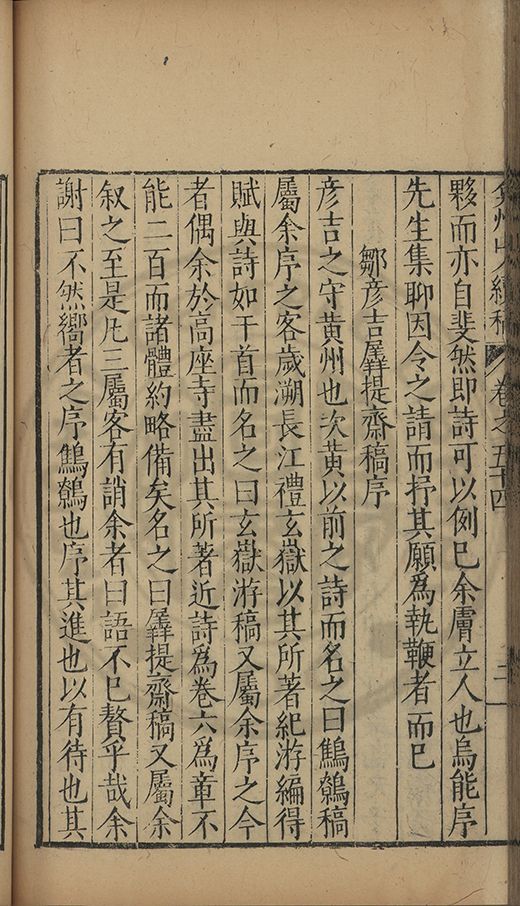 弇州山人續稿 卷之五十四 二
夥而亦自斐然即詩可以例巳余膚立人也烏能序
先生集聊因令之請而抒其願爲執鞭者而巳
鄒彦吉羼提齋稿序
彦吉之守黄州也次黄以前之詩而名之曰鷦鷯稿
屬余序之客歲溯長江禮玄嶽以其所著紀游編得
賦與詩如干首而名之曰玄嶽游稿又屬余序之今
者偶余於高座寺盡出其所著近詩爲卷六爲章不
能二百而諸體約略備矣名之曰羼提齋稿又屬余
叙之至是凡三屬客有誚余者曰語不巳贅乎哉余
謝曰不然嚮者之序鷦鷯也序其進也以有待也其